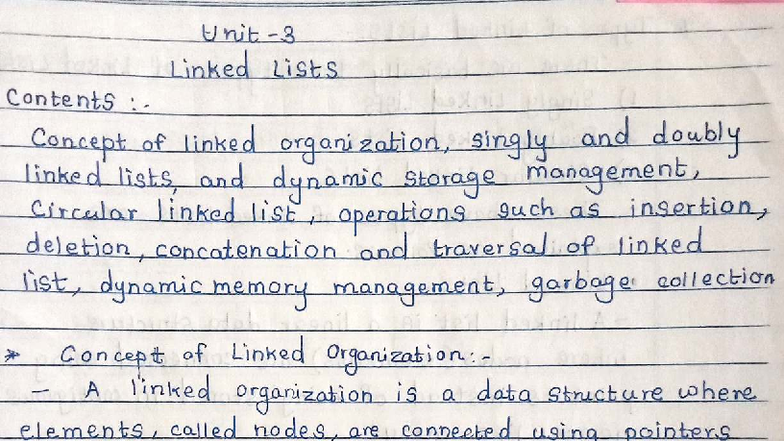 Unit-3
Linked Lists
Contents :-
Concept of linked organization, singly and doubly
linked lists, and dynamic storage management,
Circular linked list, operations such as insertion,
deletion, concatenation and traversal of linked
list, dynamic memory management, garbage collection
* Concept of Linked Organization:-
- A linked organization is a data structure where
elements, called nodes, are connected using pointers